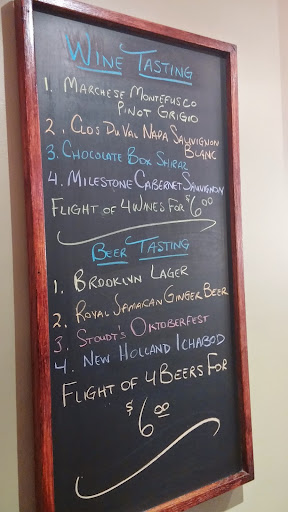 WINE TASTING
1. MARCHESE MONTEFUSCO
PINOT GRIGIO
2. CLOS DU VAL NAPA SAUVIGNON
BLANC
3. CHOCOLATE BOX SHIRAZ
4. MILESTONE CABERNET SAUVIGNON
FLIGHT OF 4 WINES FOR $6.00
BEER TASTING
1. BROOKLYN LAGER
2. ROYAL JAMAICAN GINGER BEER
3. STOUDT'S OKTOBERFEST
4. NEW HOLLAND ICHABOD
FLIGHT OF 4 BEERS FOR
$6.00